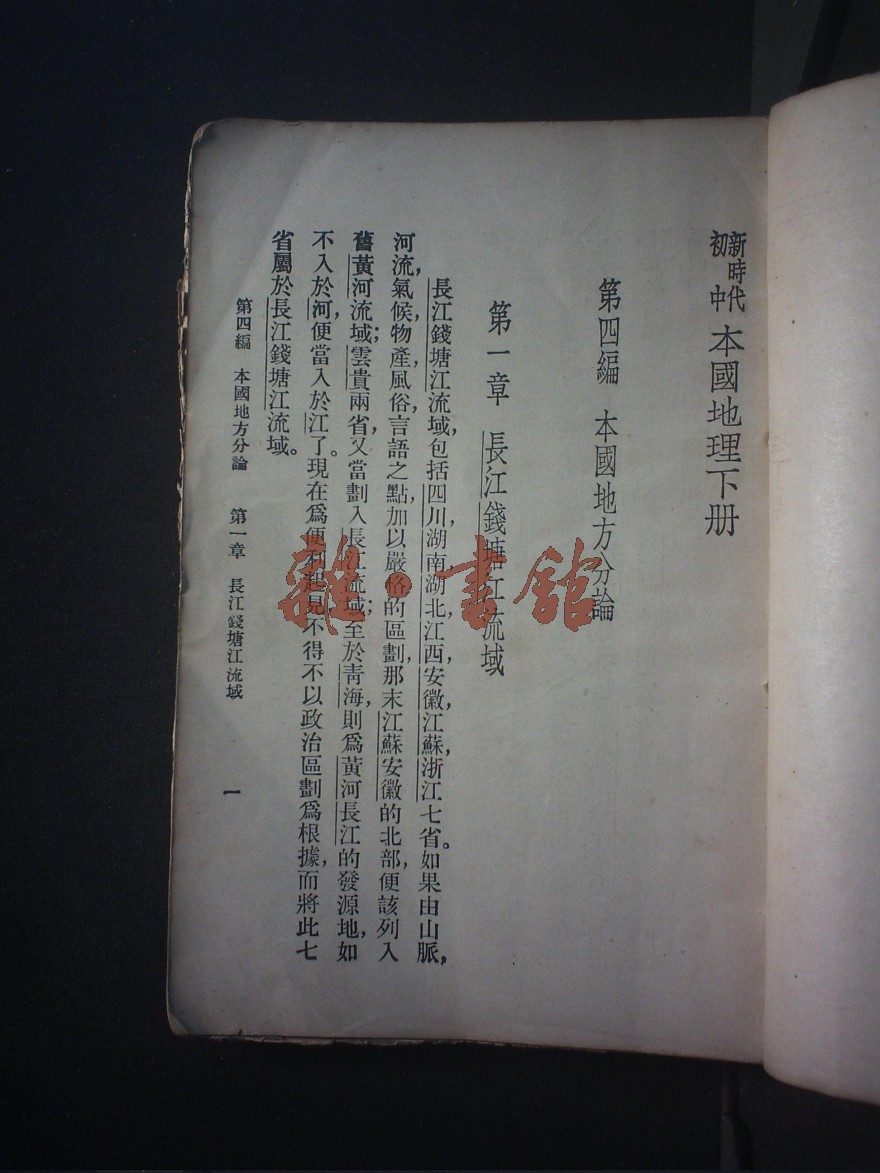 新時代初中 本國地理下册
第四編 本國地方分論
第一章 長江錢塘江流域
長江錢塘江流域,包括四川,湖南,湖北,江西,安徽,江蘇,浙江七省。如果由山脈,
河流,氣候,物產,風俗,言語之點,加以嚴格的區劃,那末江蘇安徽的北部,便該列入
舊黃河流域;雲貴兩省,又當劃入長江流域;至於青海,則爲黃河長江的發源地,如
不入於河,便當入於江了。現在爲便利起見,不得不以政治區劃爲根據,而將此七
省屬於長江錢塘江流域。
第四編 本國地方分論 第一章 長江錢塘江流域
一
雜·書館